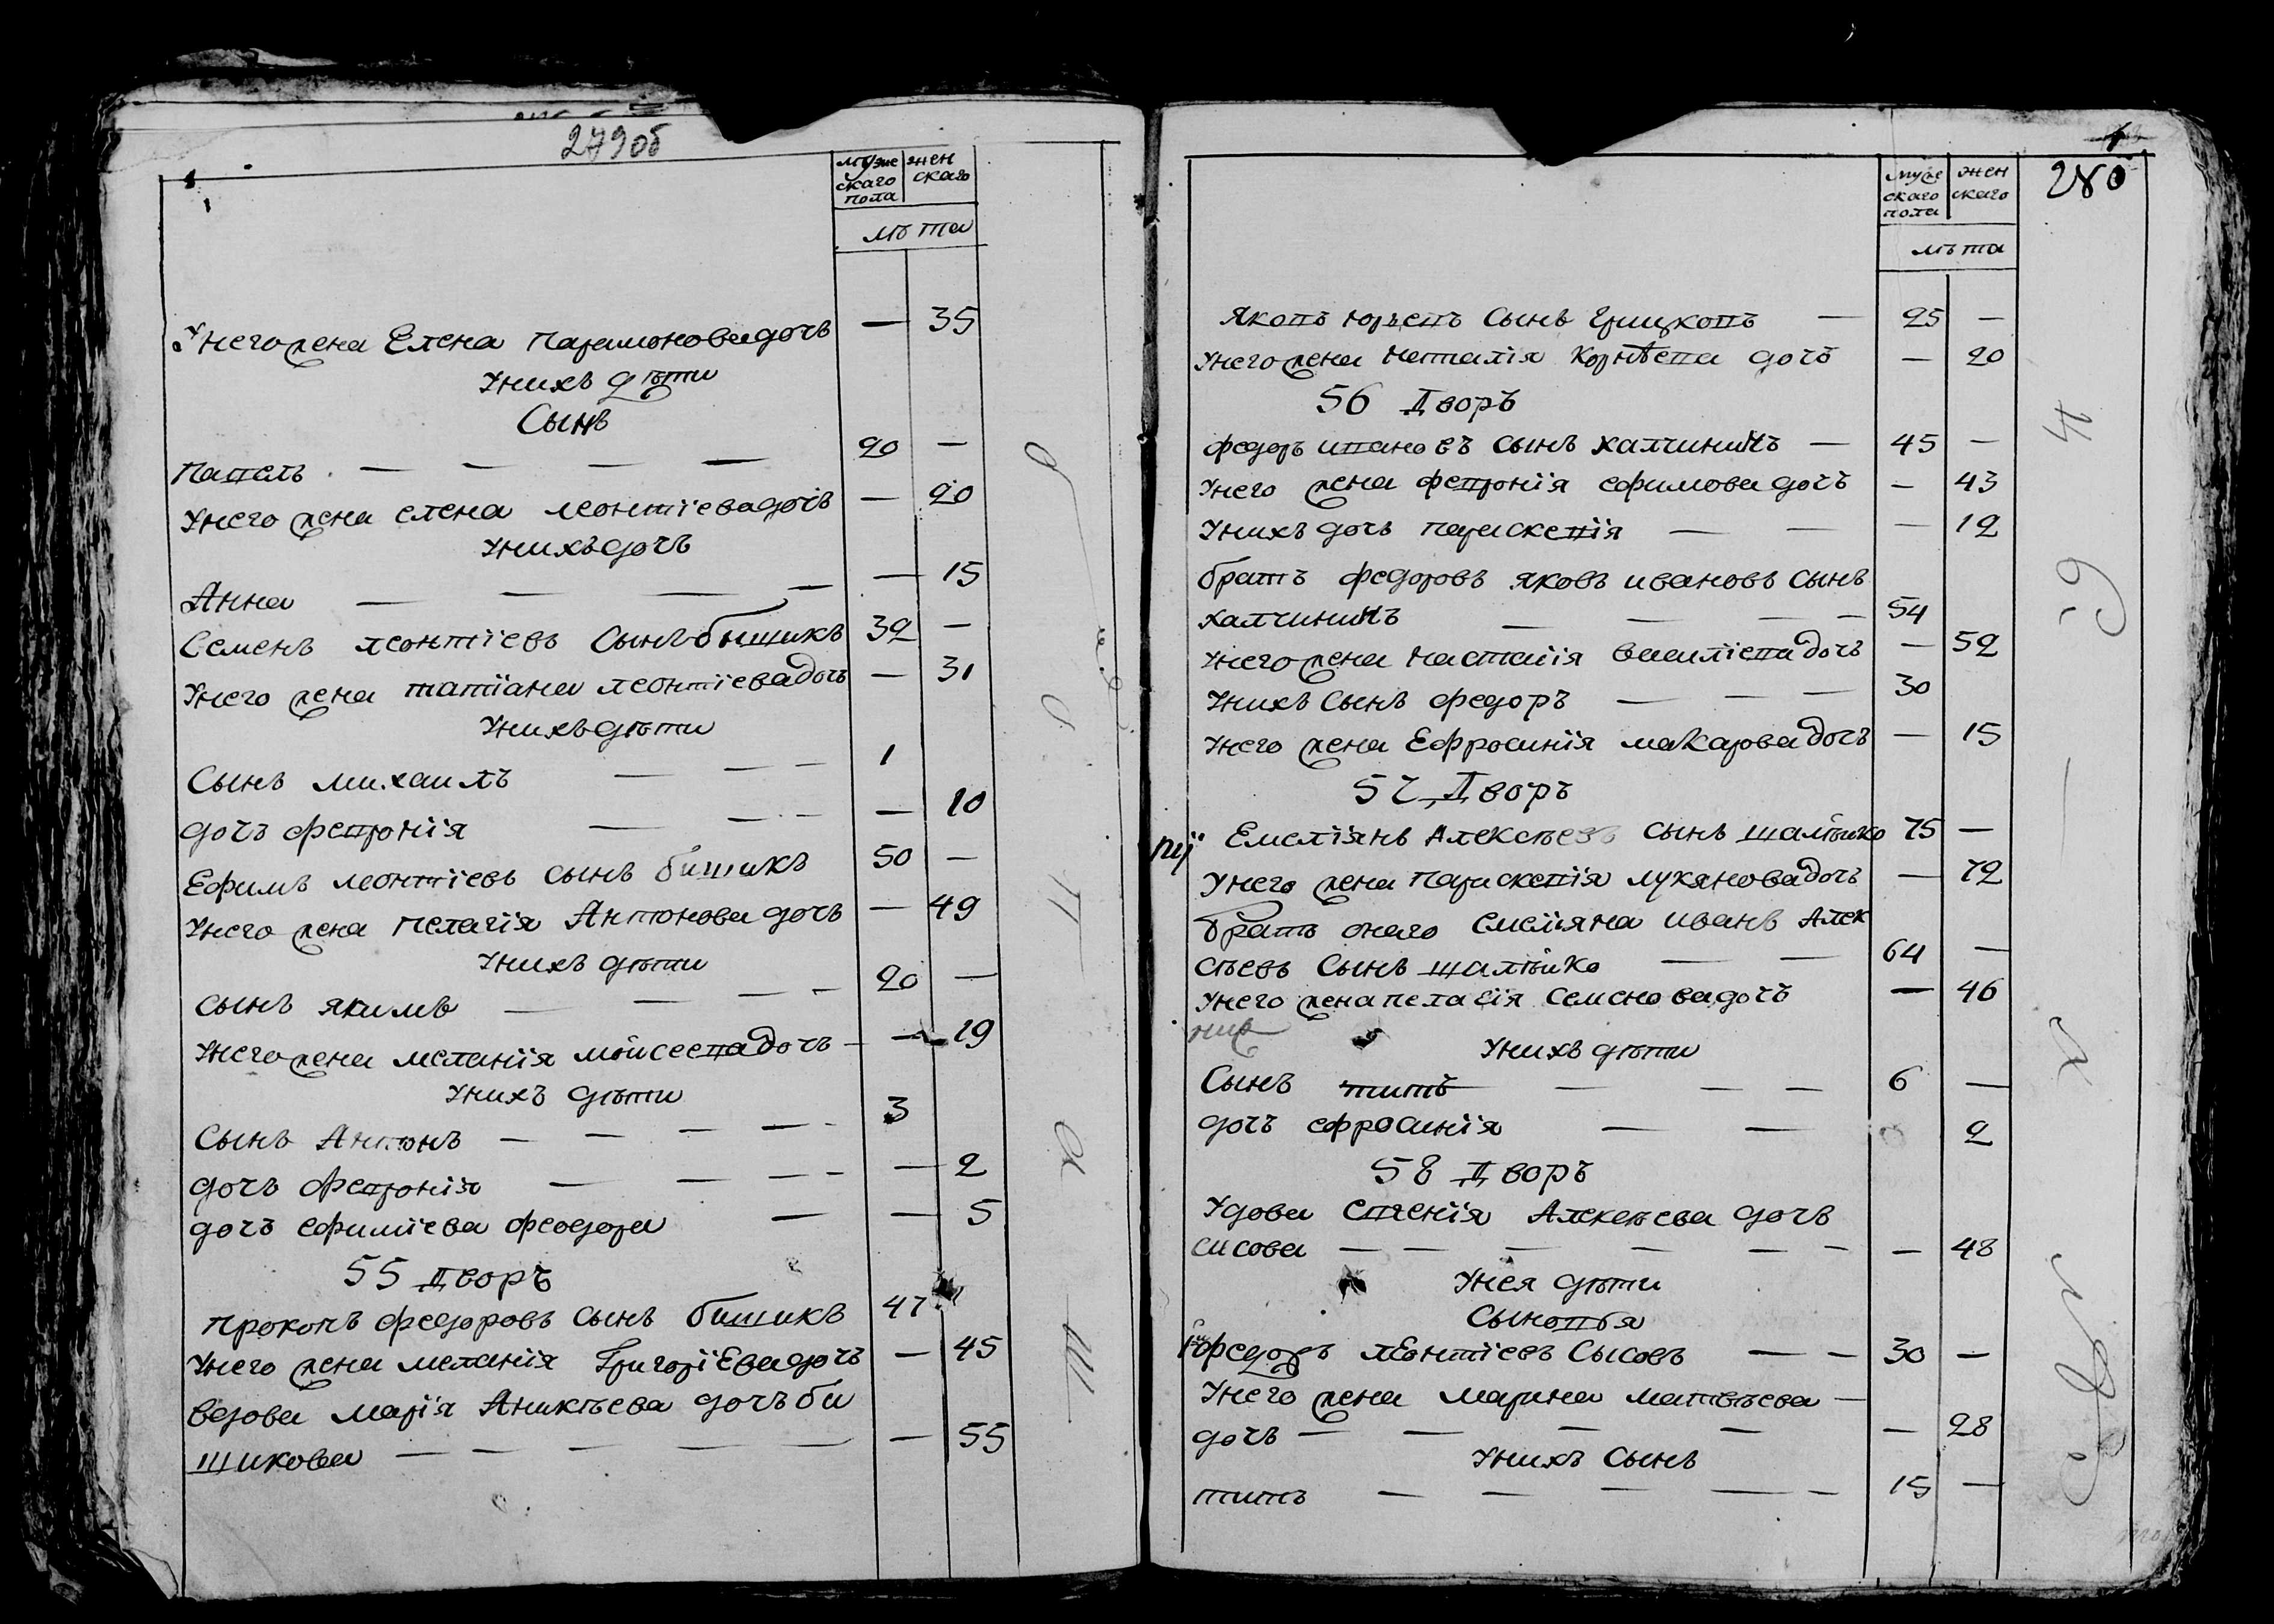 279об
муже жен
скаго скаго
пола
лѣта
У него жена Елена Парамонова дочь — 35
У нихъ дѣти
Сынъ
Павелъ — — — — 20 —
У него жена елена леонтїева дочь — 20
У нихъ дочь
Анна — — — — — 15
Семенъ леонтїевъ Сынъ бишикъ 32 —
У него жена татїана леонтїева дочь — 31
У нихъ дѣти
Сынъ михаилъ — — — 1
дочъ феѵронїя — — — — 10
Ефимъ леонтїевъ сынъ бишикъ 50 —
У него жена пелагїя Антонова дочь — 49
У нихъ дѣти
сынъ якимъ — — — — 20 —
У него жена меланїя мойсеева дочъ — — 19
У нихъ дѣти
Сынъ Антонъ — — — — — 3
дочъ февронїя — — — — — 2
дочъ ефимїева феодора — — 5
55 Дворъ
прокопъ федоровъ сынъ бишикъ 47
У него жена меланїя Григорїева дочъ — 45
вдова марїя Аникѣева дочъ би
шикова — — — — — — 55
280
муже жен
скаго скаго
пола
лѣта
Яковъ юрьевъ Сынъ Грицковъ — 25 —
У него жена наталїя Корнѣева дочъ — 20
56 Дворъ
федоръ ивановъ сынъ халчининъ — 45 —
У него жена февронїя ефимова дочъ — 43
У нихъ дочь параскевїя — — — 12
братъ федоровъ яковъ ивановъ сынъ
халчининъ — — — — 54
У него жена настасїя василїева дочь — 52
У нихъ Сынъ федоръ — — — 30
У него жена Ефросинїя макарова дочъ — 15
57 Дворъ
Емелїянъ Алексѣевъ сынъ шалѣико 75 —
У него жена параскевїя лукянова дочь — 72
братъ оного емелїяна иванъ Алек
сѣевъ Сынъ шалѣйко — — 64 —
У него жена пелагїя семенова дочъ — 46
У нихъ дѣти
Сынъ титъ — — — 6 —
дочъ ефросинїя — — 2
58 Дворъ
Удова Алексѣева дочъ
сисова — — — — — — — 48
У нея дѣти
Сыновья
федоръ леонтїевъ Сысовъ — — 30 —
У него жена марина матвѣева —
дочъ — — — — — — 28
У нихъ Сынъ
титъ — — — — — 15 —